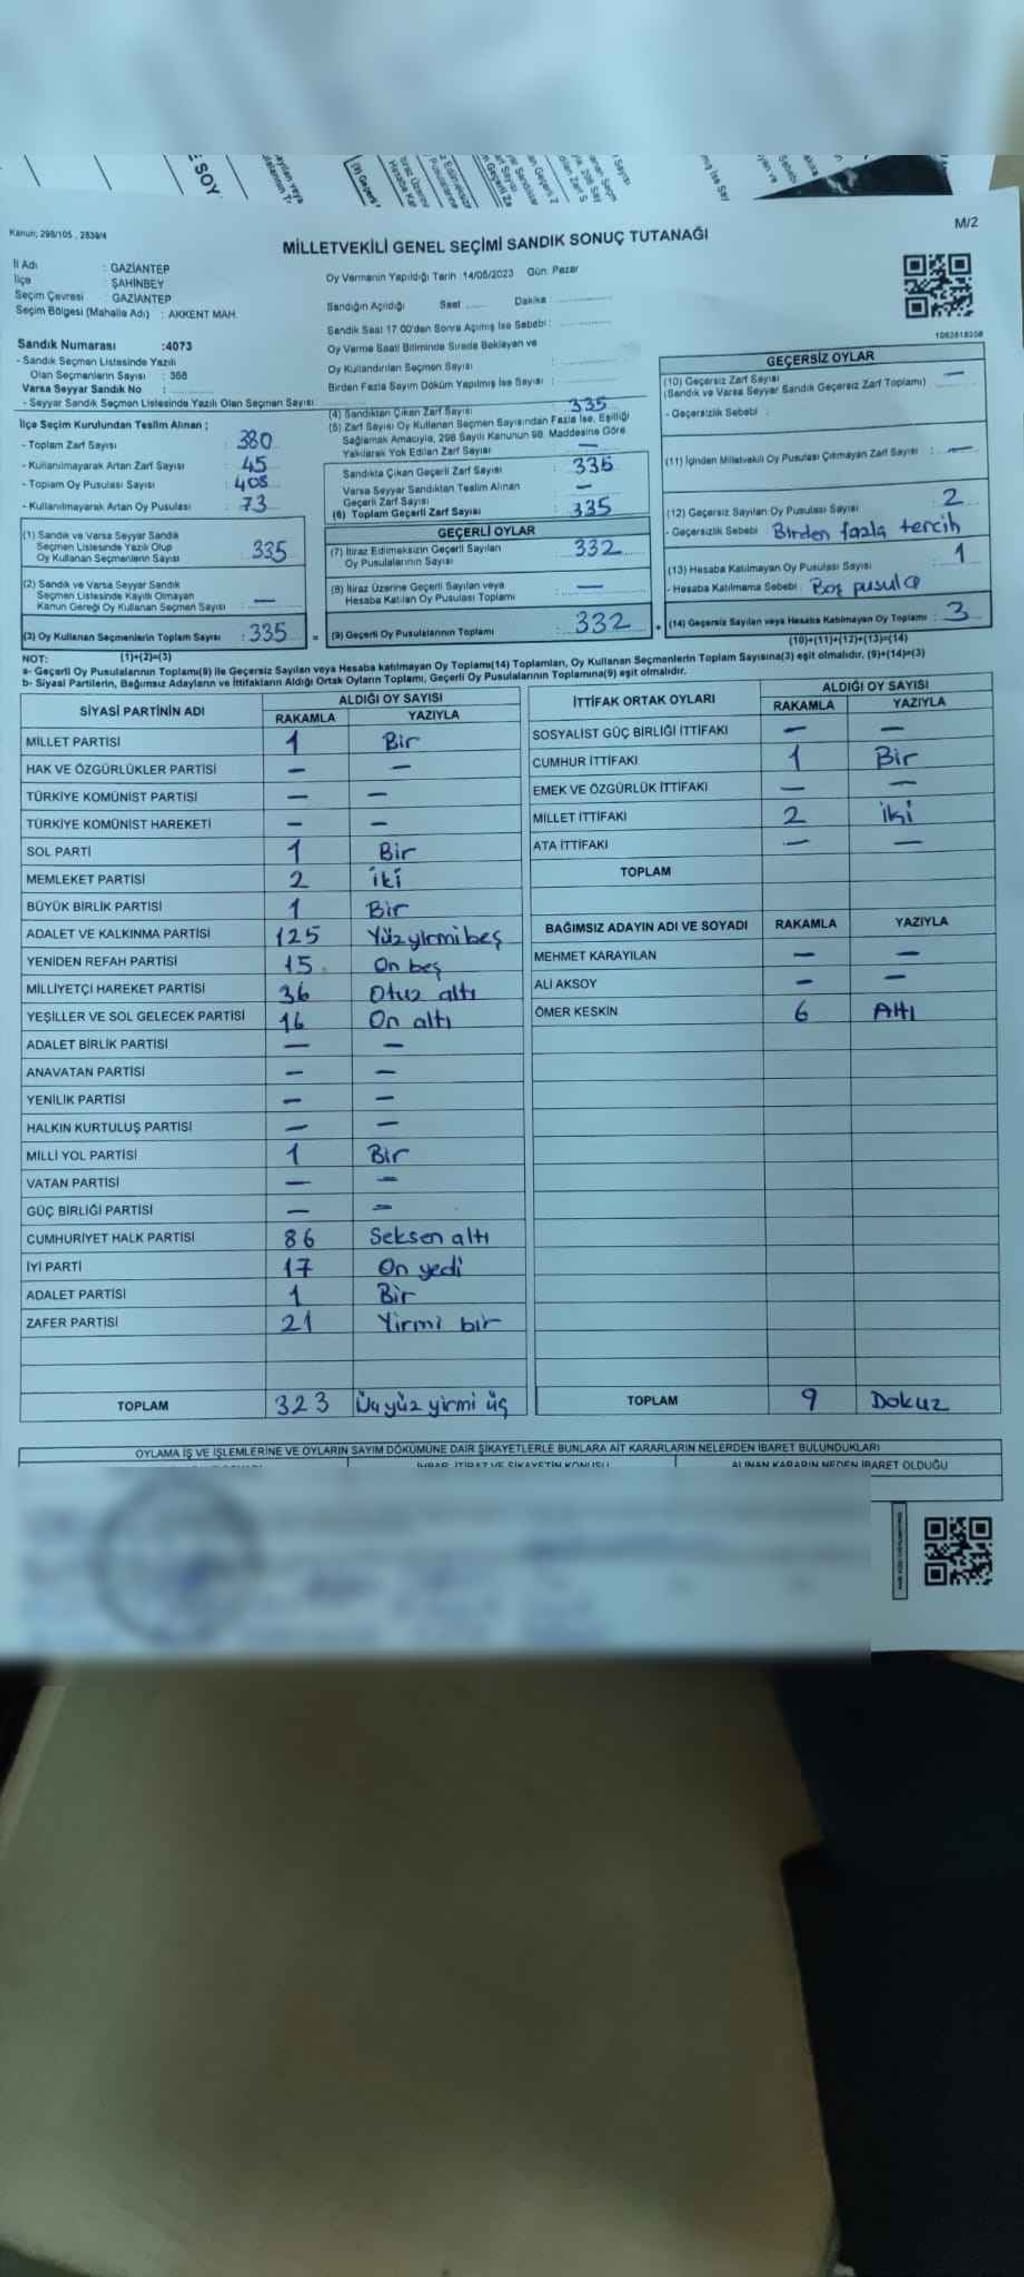 Kanun; 298/105 , 2839/4
M/2
MİLLETVEKİLİ GENEL SEÇİMİ SANDIK SONUÇ TUTANAĞI
İl Adı : GAZİANTEP
İlçe : ŞAHİNBEY
Seçim Çevresi : GAZİANTEP
Seçim Bölgesi (Mahalle Adı) : AKKENT MAH.
Oy Vermenin Yapıldığı Tarih :14/05/2023 Gün: Pazar
Sandığın Açıldığı Saat ...... Dakika :
Sandık Saat 17.00'den Sonra Açılmış İse Sebebi :
Oy Verme Saati Bitiminde Sırada Bekleyen ve
Oy Kullandırılan Seçmen Sayısı :
Birden Fazla Sayım Döküm Yapılmış İse Sayısı :
Sandık Numarası :4073
- Sandık Seçmen Listesinde Yazılı
Olan Seçmenlerin Sayısı : 368
Varsa Seyyar Sandık No :
- Seyyar Sandık Seçmen Listesinde Yazılı Olan Seçmen Sayısı:
İlçe Seçim Kurulundan Teslim Alınan ;
- Toplam Zarf Sayısı : 380
- Kullanılmayarak Artan Zarf Sayısı : 45
- Toplam Oy Pusulası Sayısı : 405
- Kullanılmayarak Artan Oy Pusulası : 73
(1) Sandık ve Varsa Seyyar Sandık
Seçmen Listesinde Yazılı Olup
Oy Kullanan Seçmenlerin Sayısı : 335
(2) Sandık ve Varsa Seyyar Sandık
Seçmen Listesinde Kayıtlı Olmayan
Kanun Gereği Oy Kullanan Seçmen Sayısı : —
(3) Oy Kullanan Seçmenlerin Toplam Sayısı : 335 =
(1)+(2)=(3)
(4) Sandıktan Çıkan Zarf Sayısı : 335
(5) Zarf Sayısı Oy Kullanan Seçmen Sayısından Fazla İse, Eşitliği
Sağlamak Amacıyla, 298 Sayılı Kanunun 98. Maddesine Göre
Yakılarak Yok Edilen Zarf Sayısı : —
Sandıkta Çıkan Geçerli Zarf Sayısı : 335
Varsa Seyyar Sandıktan Teslim Alınan
Geçerli Zarf Sayısı : —
(6) Toplam Geçerli Zarf Sayısı : 335
GEÇERLİ OYLAR
(7) İtiraz Edilmeksizin Geçerli Sayılan
Oy Pusulalarının Sayısı : 332
(8) İtiraz Üzerine Geçerli Sayılan veya
Hesaba Katılan Oy Pusulası Toplamı : —
(9) Geçerli Oy Pusulalarının Toplamı : 332 +
GEÇERSİZ OYLAR
(10) Geçersiz Zarf Sayısı : —
(Sandık ve Varsa Seyyar Sandık Geçersiz Zarf Toplamı)
- Geçersizlik Sebebi :
(11) İçinden Milletvekili Oy Pusulası Çıkmayan Zarf Sayısı : —
(12) Geçersiz Sayılan Oy Pusulası Sayısı : 2
- Geçersizlik Sebebi : Birden fazla tercih
(13) Hesaba Katılmayan Oy Pusulası Sayısı : 1
- Hesaba Katılmama Sebebi : Boş pusula
(14) Geçersiz Sayılan veya Hesaba Katılmayan Oy Toplamı : 3
(10)+(11)+(12)+(13)=(14)
NOT:
a- Geçerli Oy Pusulalarının Toplamı(9) ile Geçersiz Sayılan veya Hesaba katılmayan Oy Toplamı(14) Toplamları, Oy Kullanan Seçmenlerin Toplam Sayısına(3) eşit olmalıdır. (9)+(14)=(3)
b- Siyasi Partilerin, Bağımsız Adayların ve İttifakların Aldığı Ortak Oyların Toplamı, Geçerli Oy Pusulalarının Toplamına(9) eşit olmalıdır.
SİYASİ PARTİNİN ADI ALDIĞI OY SAYISI
RAKAMLA YAZIYLA
MİLLET PARTİSİ 1 Bir
HAK VE ÖZGÜRLÜKLER PARTİSİ — —
TÜRKİYE KOMÜNİST PARTİSİ — —
TÜRKİYE KOMÜNİST HAREKETİ — —
SOL PARTİ 1 Bir
MEMLEKET PARTİSİ 2 iki
BÜYÜK BİRLİK PARTİSİ 1 Bir
ADALET VE KALKINMA PARTİSİ 125 Yüzyirmibeş
YENİDEN REFAH PARTİSİ 15 On beş
MİLLİYETÇİ HAREKET PARTİSİ 36 Otuz altı
YEŞİLLER VE SOL GELECEK PARTİSİ 16 On altı
ADALET BİRLİK PARTİSİ — —
ANAVATAN PARTİSİ — —
YENİLİK PARTİSİ — —
HALKIN KURTULUŞ PARTİSİ — —
MİLLİ YOL PARTİSİ 1 Bir
VATAN PARTİSİ — —
GÜÇ BİRLİĞİ PARTİSİ — —
CUMHURİYET HALK PARTİSİ 86 Seksen altı
İYİ PARTİ 17 On yedi
ADALET PARTİSİ 1 Bir
ZAFER PARTİSİ 21 Yirmi bir
TOPLAM 323 Üçyüz yirmi üç
İTTİFAK ORTAK OYLARI ALDIĞI OY SAYISI
RAKAMLA YAZIYLA
SOSYALİST GÜÇ BİRLİĞİ İTTİFAKI — —
CUMHUR İTTİFAKI 1 Bir
EMEK VE ÖZGÜRLÜK İTTİFAKI — —
MİLLET İTTİFAKI 2 iki
ATA İTTİFAKI — —
TOPLAM
BAĞIMSIZ ADAYIN ADI VE SOYADI RAKAMLA YAZIYLA
MEHMET KARAYILAN — —
ALİ AKSOY — —
ÖMER KESKİN 6 Altı
TOPLAM 9 Dokuz
OYLAMA İŞ VE İŞLEMLERİNE VE OYLARIN SAYIM DÖKÜMÜNE DAİR ŞİKAYETLERLE BUNLARA AİT KARARLARIN NELERDEN İBARET BULUNDUKLARI
İHBAR, İTİRAZ VE ŞİKAYETİN KONUSU ALINAN KARARIN NEDEN İBARET OLDUĞU